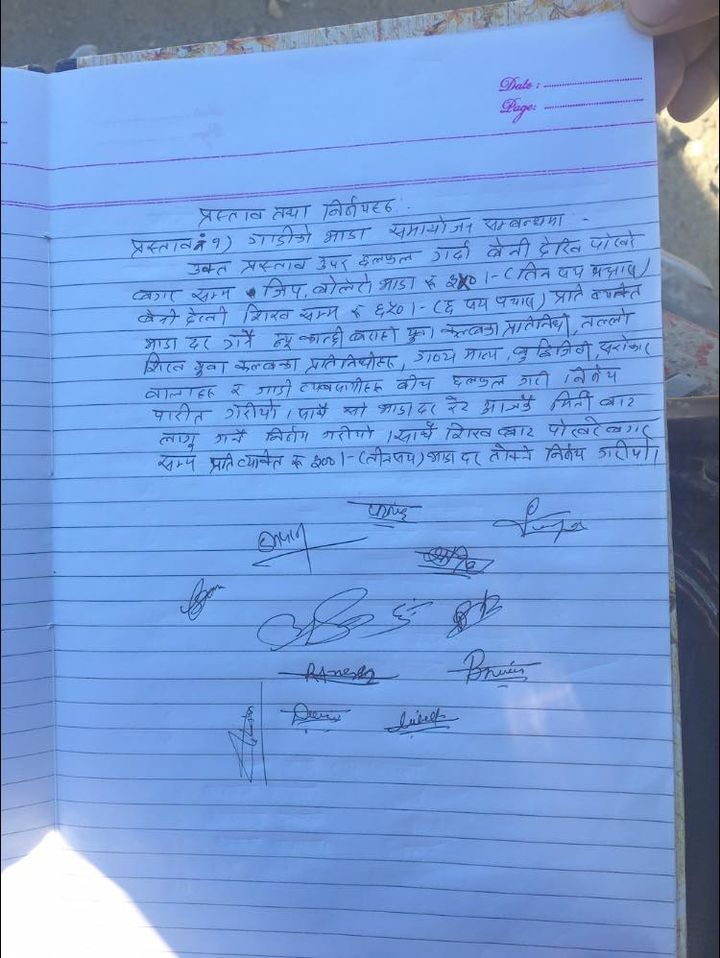 Date :
Page:
प्रस्ताव तथा निर्णयहरु :
प्रस्ताव नं १) गाडीको भाडा समायोजन सम्बन्धमा -
उक्त प्रस्ताव उपर छलफल गर्दा बेनी देखि पोखरे
बगर सम्म जिप, बोलेरो भाडा रु ३५० ।- (तिन सय पचास)
बेनी देखी शिख सम्म रु ६५० ।- (६ सय पचास) प्रति व्यक्ति
भाडा दर गर्ने युवा क्लबका प्रतिनिधी, तल्लो
शिख युवा क्लबका प्रतिनिधीहरु, गण्य मान्य, बुद्धिजिवी, सरोकार
वालाहरु र गाडी व्यवसायीहरु बीच छलफल गरी निर्णय
पारीत गरीयो । साथै सो भाडा दर रेट आजकै मिती बाट
लागु गर्ने निर्णय गरीयो । साथै शिख बाट पोखरे बगर
सम्म प्रति व्यक्ति रु ३०० ।- (तीन सय) भाडा दर तोक्ने निर्णय गरीयो ।